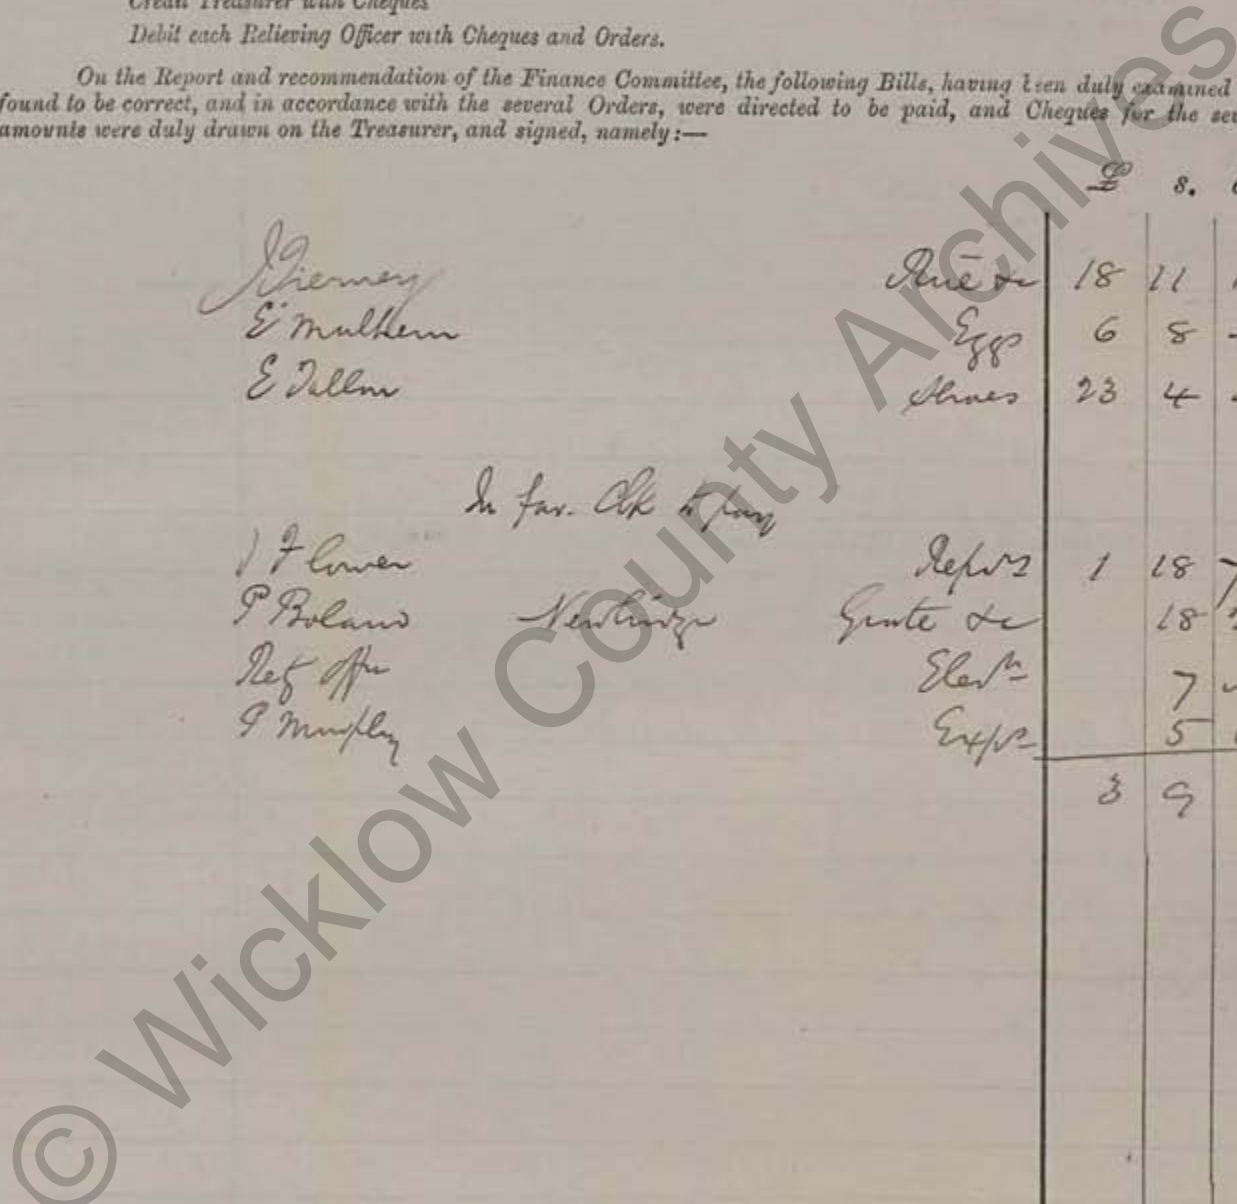 Credit Treasurer with Cheques
Debit each Relieving Officer with Cheques and Orders.
On the Report and recommendation of the Finance Committee, the following Bills, having been duly examined
found to be correct, and in accordance with the several Orders, were directed to be paid, and Cheques for the sev
amounts were duly drawn on the Treasurer, and signed, namely:—
£ s.
J Tierney &c 18 11
E Mulhern Eggs 6 8
E Tallon Shoes 23 4
In fav. Clk to pay
J Flower Repors 1 18 7
P Boland Newbridge Grate &c 18
Reg Offr Elecn 7
P Murphy Exps 5
3 9
© Wicklow County Archives